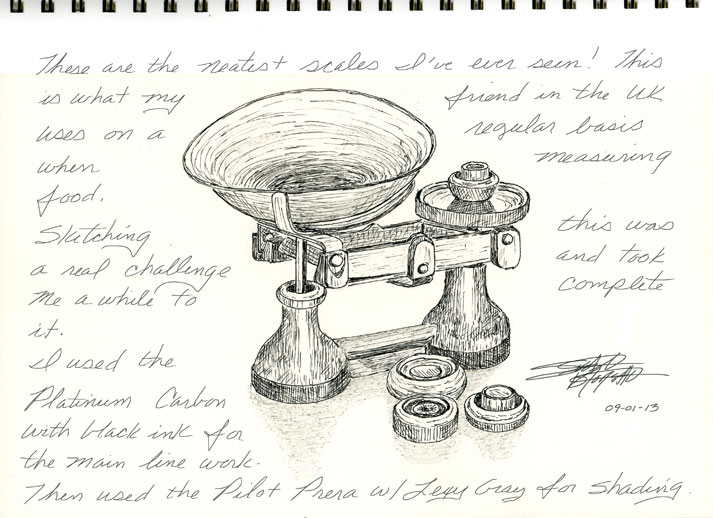 These are the neatest scales I've ever seen! This
is what my friend in the UK
uses on a regular basis
when measuring
food.
Sketching this was
a real challenge and took
me a while to complete
it.
I used the
Platinum Carbon
with black ink for
the main line work.
Then used the Pilot Prera w/ Lexy Gray for shading.
09-01-13